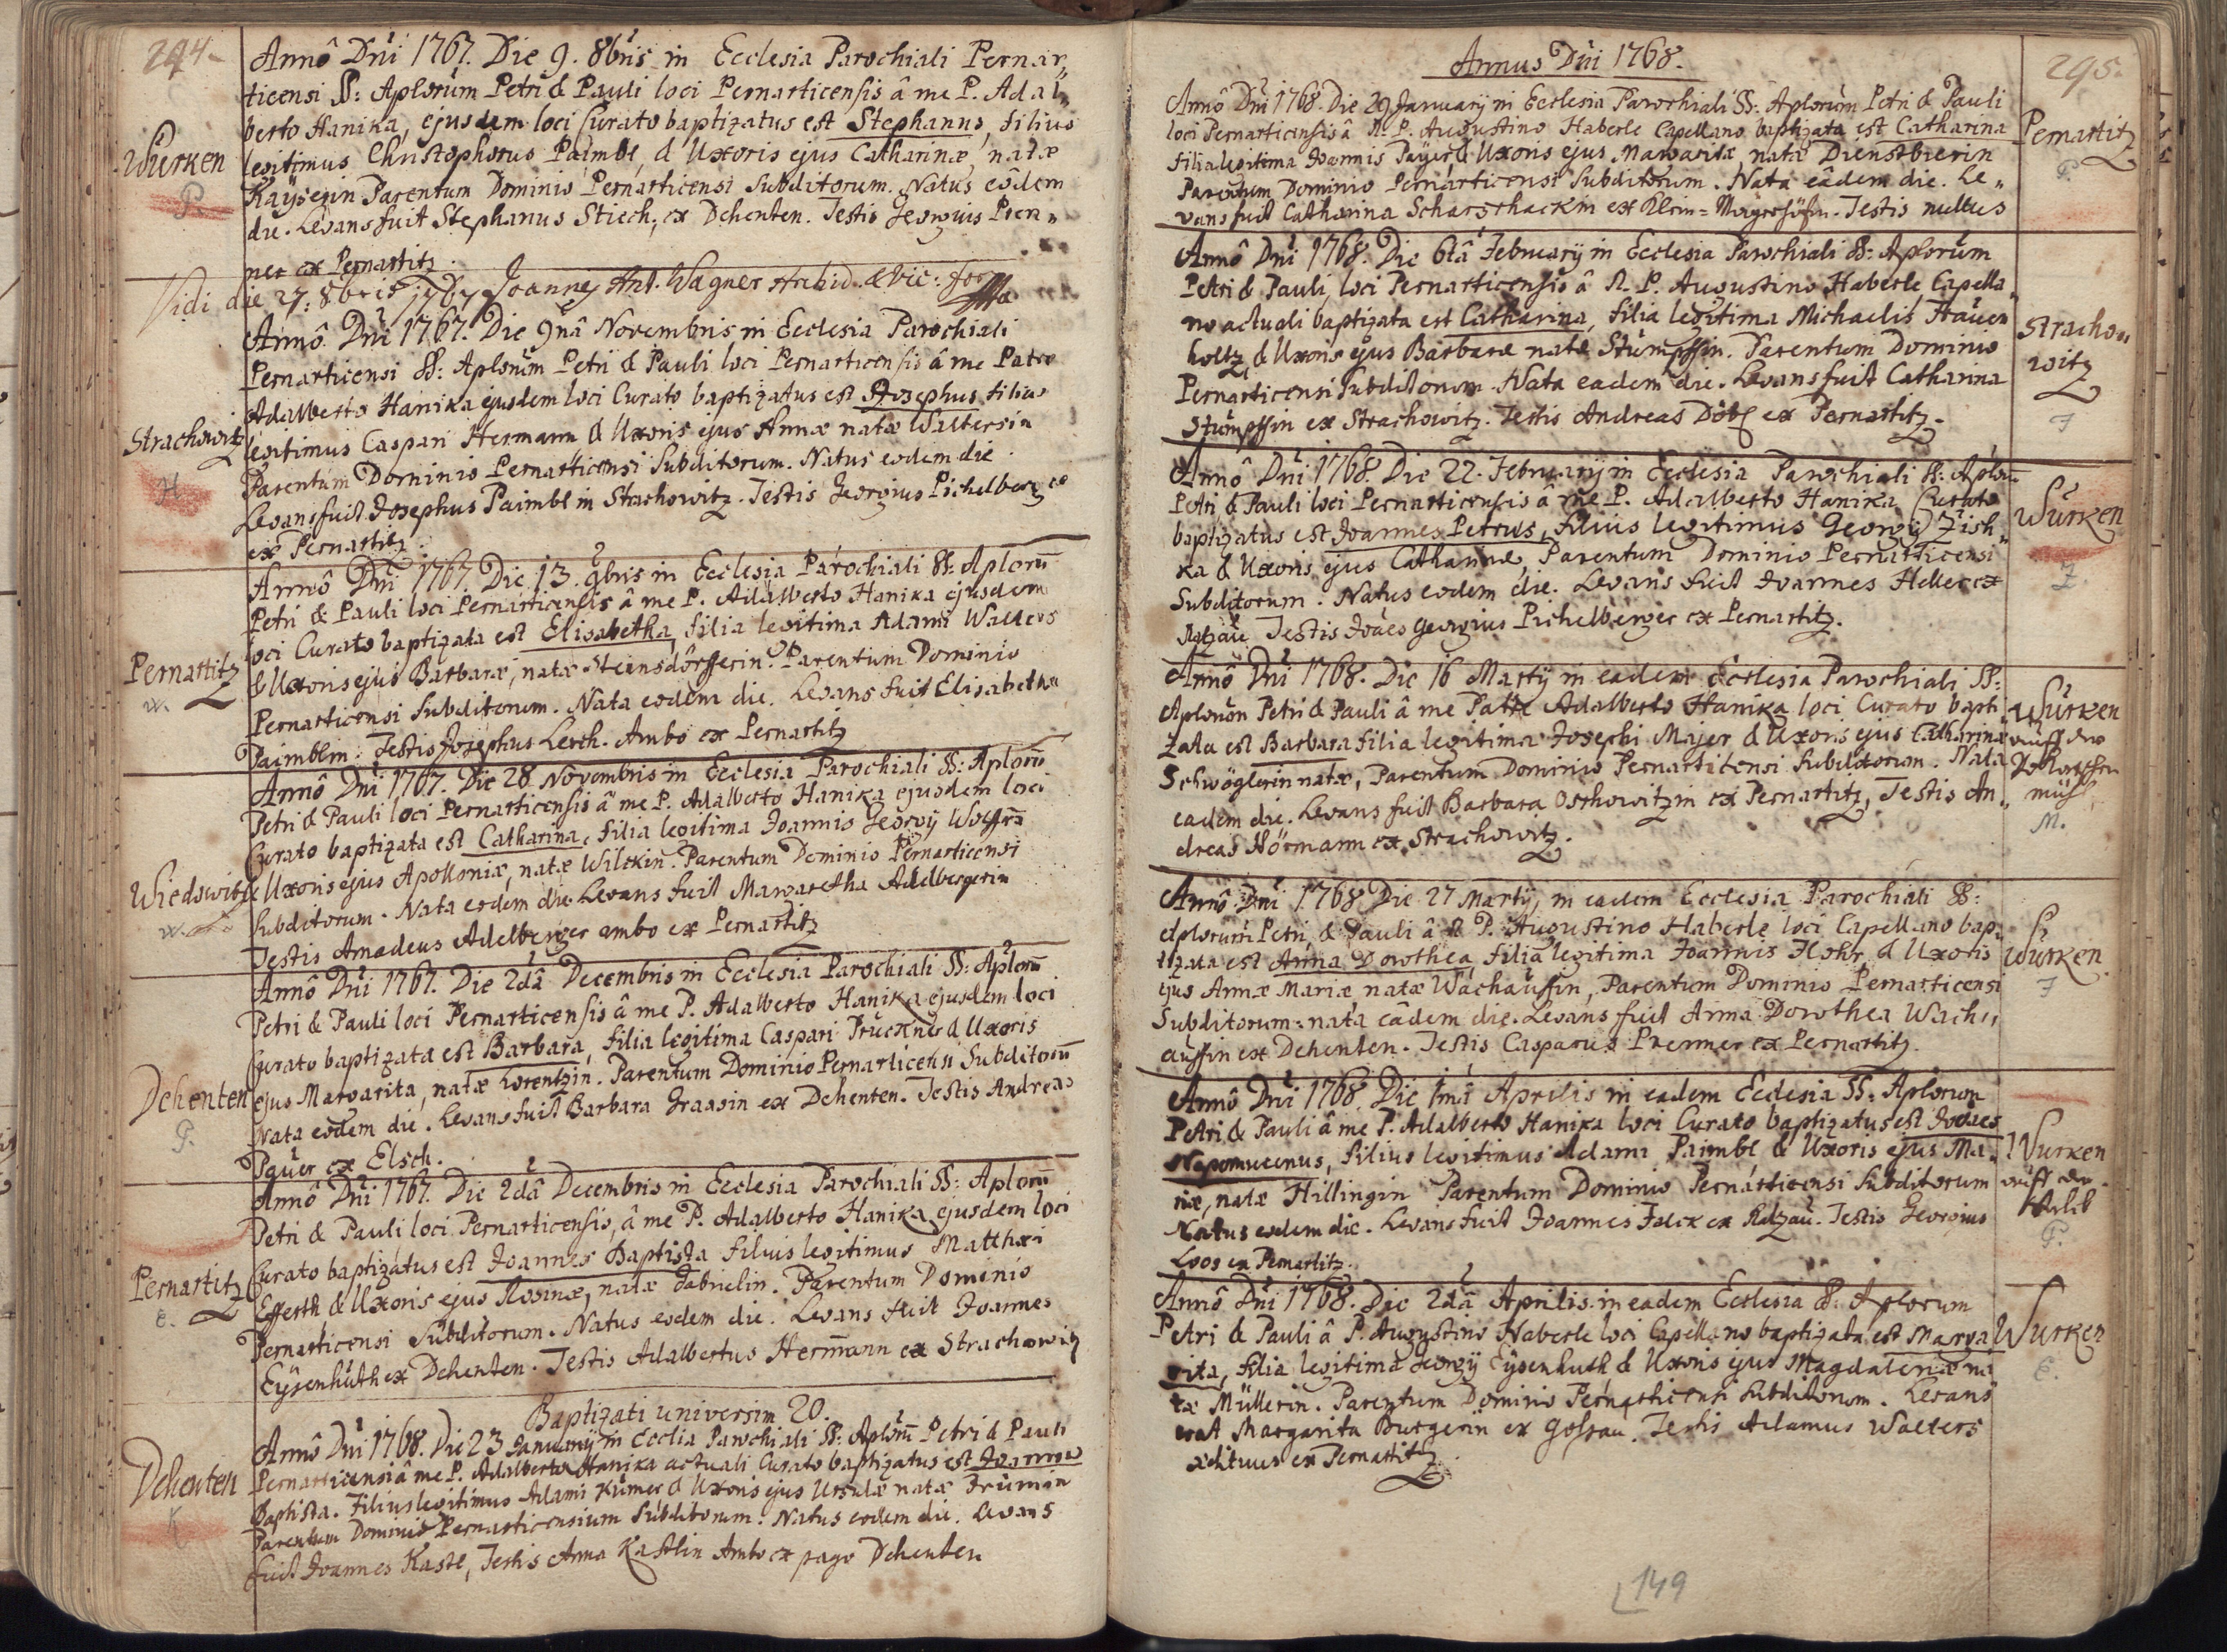 294.
Annô Dni 1767. Die 9. 8bris in Ecclesia Parochiali Pernar,,
ticensi SS: Aplorum Petri & Pauli loci Pernarticensis â me P. Adal,,
berto Hanika, ejusdem loci Curato baptizatus est Stephanus, filius
Würken legitimus Christophorus Paimbl, & Uxoris ejus Catharinæ, natæ
P. Kaÿserin Parentum Dominio Pernarticensi Subditorum. Natus eôdem
die. Levans fuit Stephanus Stiech, ex Dehenten. Testis Georgius Pren,,
ner ex Pernartitz.
Vidi die 27: 8bris 1767 Joannes Ant. Wagner Archid. & Vic:
Annô Dni 1767. Die 9nâ Novembris in Ecclesia Parochiali
Pernarticensi SS: Aplorum Petri & Pauli loci Pernarticensis â me Patre
Adalberto Hanika ejusdem loci Curato baptizatus est Josephus filius
Strachowitz legitimus Caspari Hermann & Uxoris ejus Annæ natæ Waltersin
H Parentum Dominio Pernarticensi Subditorum. Natus eodem die.
Levans fuit Josephus Paimbl in Strachowitz. Testis Georgius Pichelberger
ex Pernartitz.
Annô Dni 1767. Die 13. 9bris in Ecclesia Parochiali SS: Aplorum
Petri & Pauli loci Pernarticensis â me P. Adalberto Hanika ejusdem
loci Curato baptizata est Elisabetha, filia legitima Adami Walters
Pernartitz & Uxoris ejus Barbaræ, natæ Steinsdörfferin. Parentum Dominio
w. Pernarticensi Subditorum. Nata eodem die. Levans fuit Elisabetha
Paimblin. Testis Josephus Lerch. Ambo ex Pernartitz
Annô Dni 1767. Die 28 Novembris in Ecclesia Parochiali SS: Aplorum
Petri & Pauli loci Pernarticensis â me P. Adalberto Hanika ejusdem loci
Curato baptizata est Catharina, filia legitima Joannis Georgij Wolffra
Wiedowitz & Uxoris ejus Apolloniæ, natæ Wilckin. Parentum Dominio Pernarticensi
w. Subditorum. Nata eodem die. Levans fuit Margaretha Adelbergerin
Testis Amadeus Adelberger ambo ex Pernartitz
Annô Dni 1767. Die 2dâ Decembris in Ecclesia Parochiali SS: Aplorum
Petri & Pauli loci Pernarticensis â me P. Adalberto Hanika ejusdem loci
Curato baptizata est Barbara, filia legitima Caspari Pruckner & Uxoris
Dehenten ejus Margarita, natæ Lorentzin. Parentum Dominio Pernarticensi Subditorum
P. Nata eodem die. Levans fuit Barbara Graasin ex Dehenten. Testis Andreas
Paüer ex Elsch.
Annô Dni 1767. Die 2dâ Decembris in Ecclesia Parochiali SS: Aplorum
Petri & Pauli loci Pernarticensis, â me P. Adalberto Hanika ejusdem loci
Curato baptizatus est Joannes Baptista filius legitimus Matthæi
Pernartitz Efferth & Uxoris ejus Rosinæ, natæ Gabrielin. Parentum Dominio
E. Pernarticensi Subditorum. Natus eodem die. Levans fuit Joannes
Eÿsenhuth ex Dehenten. Testis Adalbertus Hermann ex Strachowitz
Baptizati universim 20.
Annô Dni 1768. Die 23 Januarij in Ecclia Parochiali SS: Aplorum Petri & Pauli
Dehenten Pernarticensi â me P. Adalberto Hanika actuali Curato baptizatus est Joannes
K Baptista. Filius legitimus Adami Kümer & Uxoris ejus Ursulæ natæ
Parentum Dominio Pernarticensium Subditorum. Natus eodem die. Levans
fuit Joannes Kastl, Testis Anna Kastlin Ambo ex pago Dehenten
Annus Dni 1768.
295.
Annô Dni 1768. Die 29 Januarij in Ecclesia Parochiali SS: Aplorum Petri & Pauli
loci Pernarticensis â R. P. Augustino Haberle Capellano baptizata est Catharina Pernartitz
filia legitima Joannis Paÿer & Uxoris ejus Margaritæ, natæ Dienstbierin P.
Parentum Dominio Pernarticensi Subditorum. Nata eâdem die. Le,,
vans fuit Catharina Scharschackin ex Klein= Testis nullus
Annô Dni 1768. Die 6tâ Februarij in Ecclesia Parochiali SS: Aplorum
Petri & Pauli, loci Pernarticensis â R. P. Augustino Haberle Capella,,
no actuali baptizata est Catharina, filia legitima Michaelis Strachow
holtz, & Uxoris ejus Barbaræ natæ Stümpffin. Parentum Dominio witz
Pernarticensi Subditorum. Nata eadem die. Levans fuit Catharina
Stümpffin ex Strachowitz. Testis Andreas ex Pernartitz.
Annô Dni 1768. Die 22. Februarij in Ecclesia Parochiali SS: Aplorum
Petri & Pauli loci Pernarticensis â me P. Adalberto Hanika Curato Würken
baptizatus est Joannes Petrus, filius legitimus Georgij Zisch,,
ka & Uxoris ejus Catharinæ, Parentum Dominio Pernarticensi Z.
Subditorum. Natus eodem die. Levans fuit Joannes Heller ex
Ratzau Testis Joães Georgius Pichelberger ex Pernartitz.
Annô Dni 1768. Die 16 Martij in eadem Ecclesia Parochiali SS:
Aplorum Petri & Pauli â me Patre Adalberto Hanika loci Curato bapti Würken
zata est Barbara filia legitima Josephi Majer & Uxoris ejus Catharinæ
Schwöglerin natæ, Parentum Dominio Pernarticensi Subditorum. Nata
eadem die. Levans fuit Barbara Oschowitzin ex Pernartitz, Testis An,, mühl
dreas Hörmann ex Strachowitz. M.
Annô Dni 1768 Die 27 Martij, in eadem Ecclesia Parochiali SS:
Aplorum Petri, & Pauli â R. P. Augustino Haberle loci Capellano bap,,
tizata est Anna Dorothea filia legitima Joannis Hohr & Uxoris Würken
ejus Annæ Mariæ, natæ Wachaussin, Parentum Dominio Pernarticensi
Subditorum: nata eâdem die. Levans fuit Anna Dorothea Wach,,
aussin ex Dehenten. Testis Casparus Prenner ex Pernartitz.
Annô Dni 1768. Die 1mâ Aprilis in eadem Ecclesia SS: Aplorum
Petri & Pauli â me P. Adalberto Hanika loci Curato baptizatus est Joães
Nepomucenus, filius legitimus Adami Paimbl & Uxoris ejus Ma,, Würken
riæ, natæ Hillingin Parentum Dominio Pernarticensi Subditorum
Natus eodem die. Levans fuit Joannes Falck ex Ratzau. Testis Georgius
Loos ex Pernartitz. P.
Annô Dni 1768. Die 2dâ Aprilis in eadem Ecclesia SS: Aplorum
Petri & Pauli â P. Augustino Haberle loci Capellano baptizata est Marga Würken
rita, filia legitima Georgij Eÿsenhuth & Uxoris ejus Magdalenæ na E.
tæ Müllerin. Parentum Dominio Pernarticensi Subditorum. Levans
erat Margarita Burgerin ex Gossau. Testis Adamus Walters
ædituus ex Pernartitz.
149